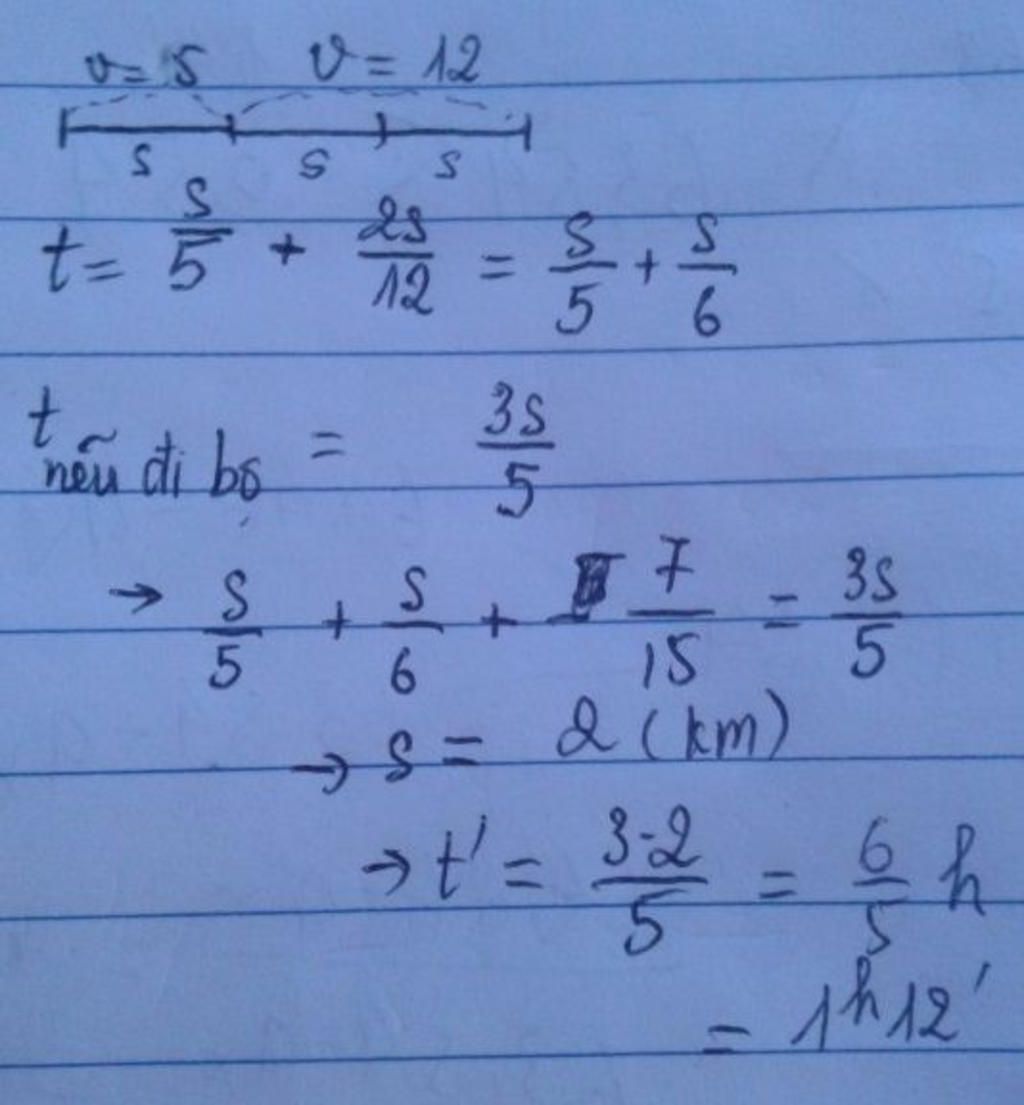 v= 5 v = 12
s s s
t = s/5 + 2s/12 = s/5 + s/6
t nếu đi bộ = 3s/5
→ s/5 + s/6 + 7/15 = 3s/5
→ s = 2 (km)
→ t' = 3.2/5 = 6/5 h
= 1h12'